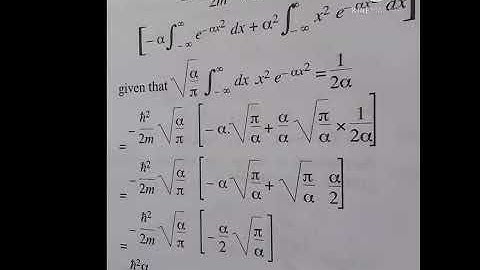 2m
[-α∫_{-∞}^{∞} e^{-αx²} dx + α² ∫_{-∞}^{∞} x² e^{-αx²} dx]
given that √(α/π) ∫_{-∞}^{∞} dx .x² e^{-αx²} = 1/2α
= -ħ²/2m √(α/π) [-α.√(π/α) + α/α √(π/α) × 1/2α]
= -ħ²/2m √(α/π) [-α √(π/α) + √(π/α) α/2]
= -ħ²/2m √(α/π) [-α/2 √(π/α)]
ħ²α